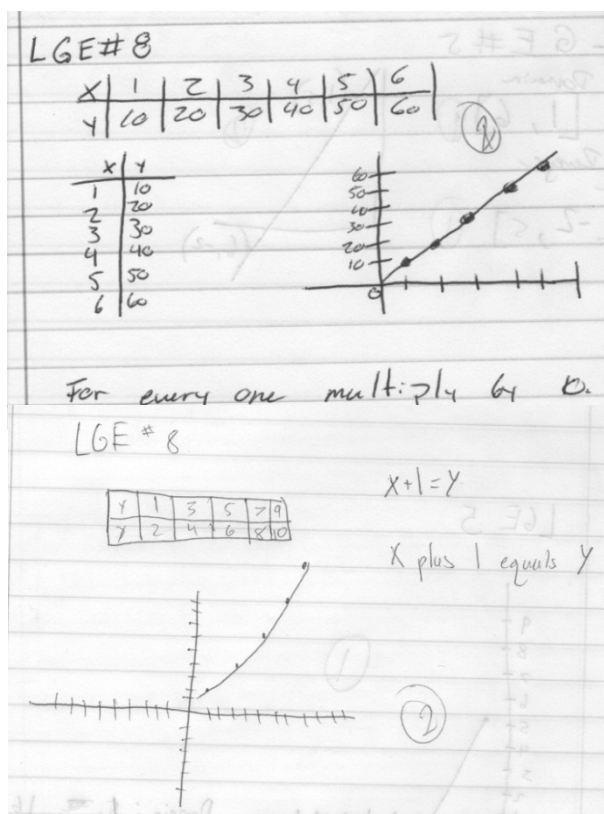 LGE# 8
X 1 2 3 4 5 6
Y 10 20 30 40 50 60
X Y
1 10
2 20
3 30
4 40
5 50
6 60
60
50
40
30
20
10
0
For every one multiply by 10.
LGE # 8
X+1=Y
Y 1 3 5 7 9
Y 2 4 6 8 10
X plus 1 equals Y
2